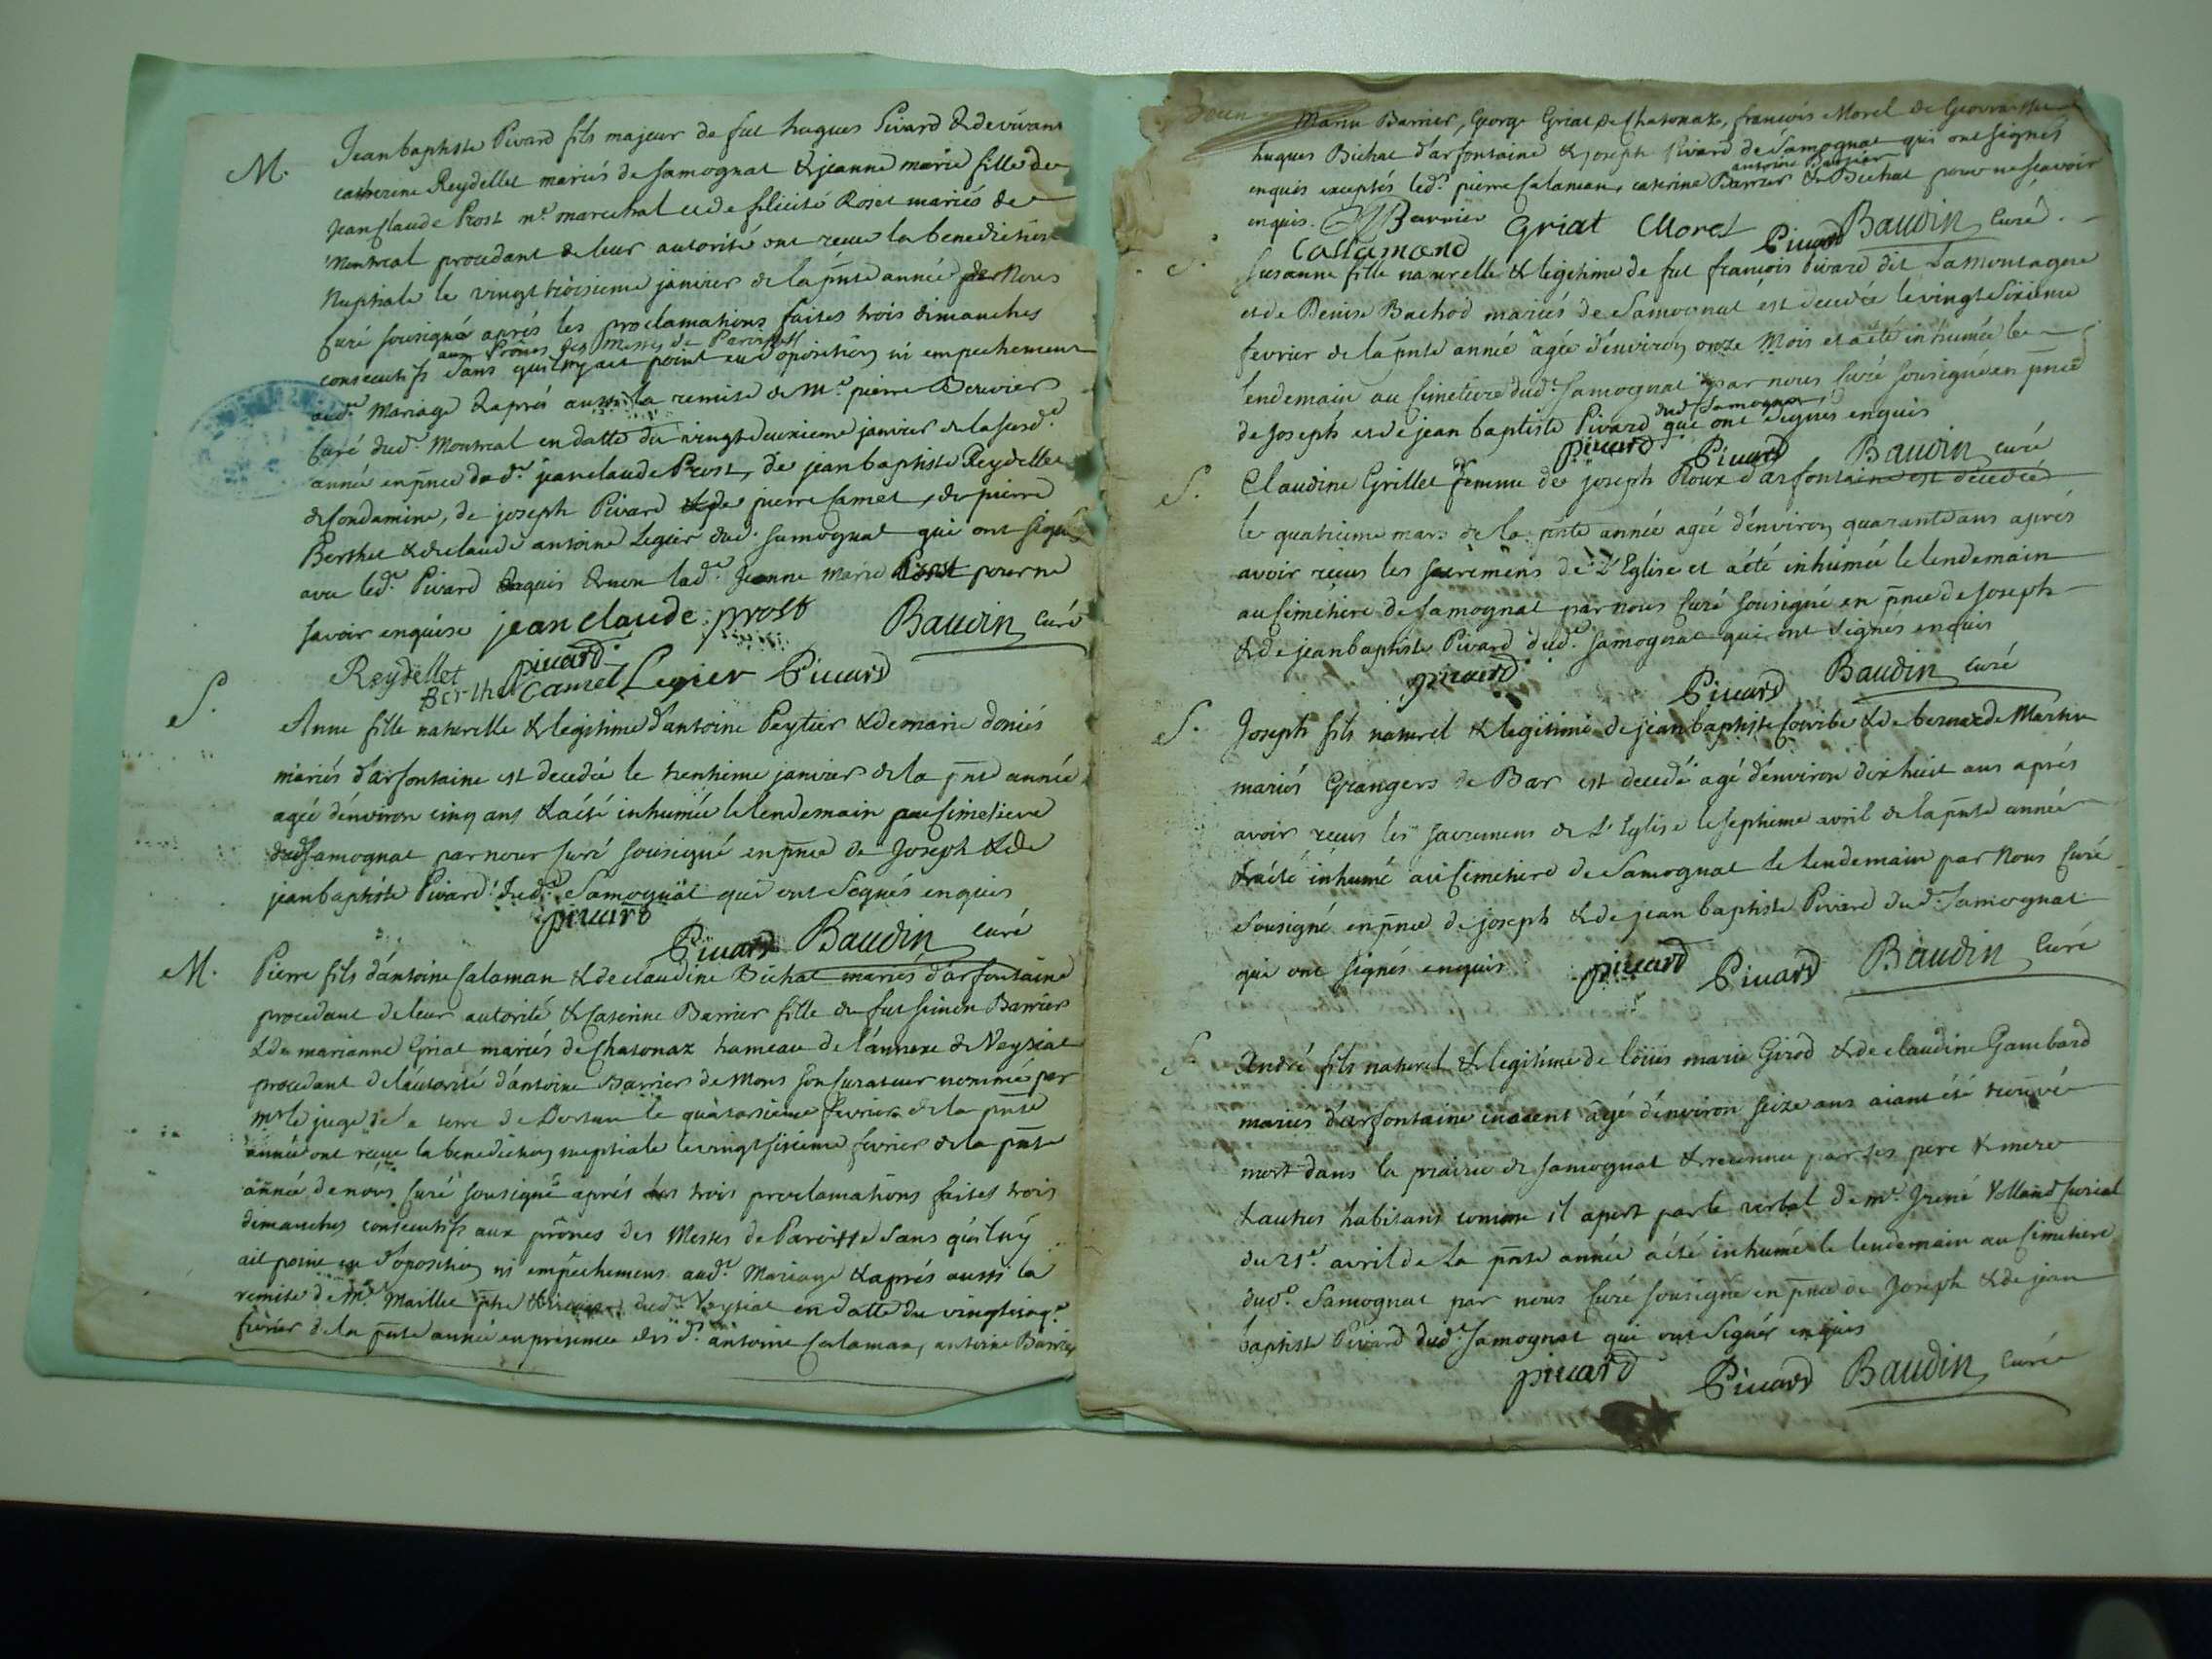 M. Jean baptiste Pivard fils majeur de fut hugues Pivard & de vivant
catherine Reydellet mariés de samognat & jeanne marie fille de
Jean Claude Prost me marechal et de felicité Roset mariés de
Montreal procedant de leur autorité ont reçue la benediction
Nuptiale le vingt troisieme janvier de la pnte année par Nous
Curé sousigné aprés les proclamations faites trois dimanches
aux Prônes des Messes de Paroisse
consecutifs sans qu'il y ait point eu d'oposition ni empechement
aud.t Mariage & aprés aussi la remise de Mr. pierre
Curé dud.t Montreal en datte du vingt deuxieme janvier de la susd.e
année en pnce dud.t jean claude Prost, de jean baptiste Reydellet
de Condamine, de joseph Pivard de pierre Camet, de pierre
Berthet & de claude antoine Legier dud.t samognat qui ont signés
avec led.t Pivard enquis & non lad.e Jeanne Marie Prost pour ne
savoir enquise jean claude prost Baudin Curé
Reydellet pivard
Berthet Camet Legier Pivard
S. Anne fille naturelle & legitime d'antoine Peytier & de marie
mariés d'arfontaine est decedée le trentieme janvier de la pnte année
agée d'environ cinq ans & a été inhumée le lendemain au simetiere
dud.t Samognat par nous Curé sousigné en pnce de Joseph & de
jean baptiste Pivard dud.t Samognat qui ont signés enquis
pivard
Pivard Baudin curé
M. Pierre fils d'antoine Calaman & de claudine Bichat mariés d'arfontaine
procedant de leur autorité & Caterine Barrier fille de fut Barrier
& de marianne Griat mariés de Chatonax hameau de l'annexe de Veyziat
procedant de l'autorité d'antoine Barrier de Mons son Curateur nommé par
mr le juge de la terre de Dortan le quatorzieme fevrier de la pnte
année ont reçue la benediction nuptiale le vingt sixieme fevrier de la pnte
année de nous Curé sousigné aprés les trois proclamations faites trois
dimanches consecutifs aux prônes des Messes de Paroisse sans qu'il y
ait point eu d'oposition ni empechemens aud.t Mariage & aprés aussi la
remise de Mr. Maillet ptre dud.t Veyziat en datte du vingt cinq.e
fevrier de la pnte année en présence des d.ts antoine Calaman, antoine Barrier
Barrier, George Griat de Chatonax, francois Morel de
hugues Bichat d'arfontaine & joseph Pivard de Samognat qui ont signés
antoine Barrier
enquis exceptés led.t pierre Calaman, caterine Barrier & Bichat pour ne scavoir
enquis. Barrier Griat Morel Pivard Baudin Curé.
Callamand
S. Susanne fille naturelle & legitime de fut francois Pivard dit La Montagne
et de Denise Bachod mariés de Samognat est decedée le vingt sixieme
fevrier de la pnte année agée d'environ onze Mois et a été inhumée le
lendemain au simetiere dud.t Samognat par nous Curé sousigné en pnce
dud.t Samognat
de Joseph et de jean baptiste Pivard qui ont signés enquis
pivard Pivard Baudin curé
S. Claudine Grillet femme de joseph Roux d'arfontaine est decedée
le quatrieme mars de la pnte année agée d'environ quarante ans aprés
avoir reçus les sacrémens de L'Eglise et a été inhumée le lendemain
au simetiere de Samognat par nous Curé sousigné en pnce de Joseph
& de jean baptiste Pivard dud.t Samognat qui ont signés enquis
pivard Pivard Baudin curé
S. Joseph fils naturel & legitime de jean baptiste & de bernarde Martin
mariés Grangers de Bar est decedé agé d'environ dix huit ans aprés
avoir reçus les sacremens de L'Eglise le septieme avril de la pnte année
& a été inhumé au simetiere de Samognat le lendemain par Nous Curé
sousigné en pnce de joseph & de jean baptiste Pivard dud.t Samognat
qui ont signés enquis pivard Pivard Baudin Curé
S. André fils naturel & legitime de loüis marie Girod & de claudine Gambard
mariés d'arfontaine agé d'environ seize ans aiant été trouvé
mort dans la prairie de Samognat & reconnu par ses pere & mere
& autres habitans comme il apert par le verbal de Mr. Volland
du 21e. avril de la pnte année a été inhumé le lendemain au simetiere
dud.t Samognat par nous Curé sousigné en pnce de Joseph & de jean
baptiste Pivard dud.t Samognat qui ont signés enquis
pivard Pivard Baudin Curé